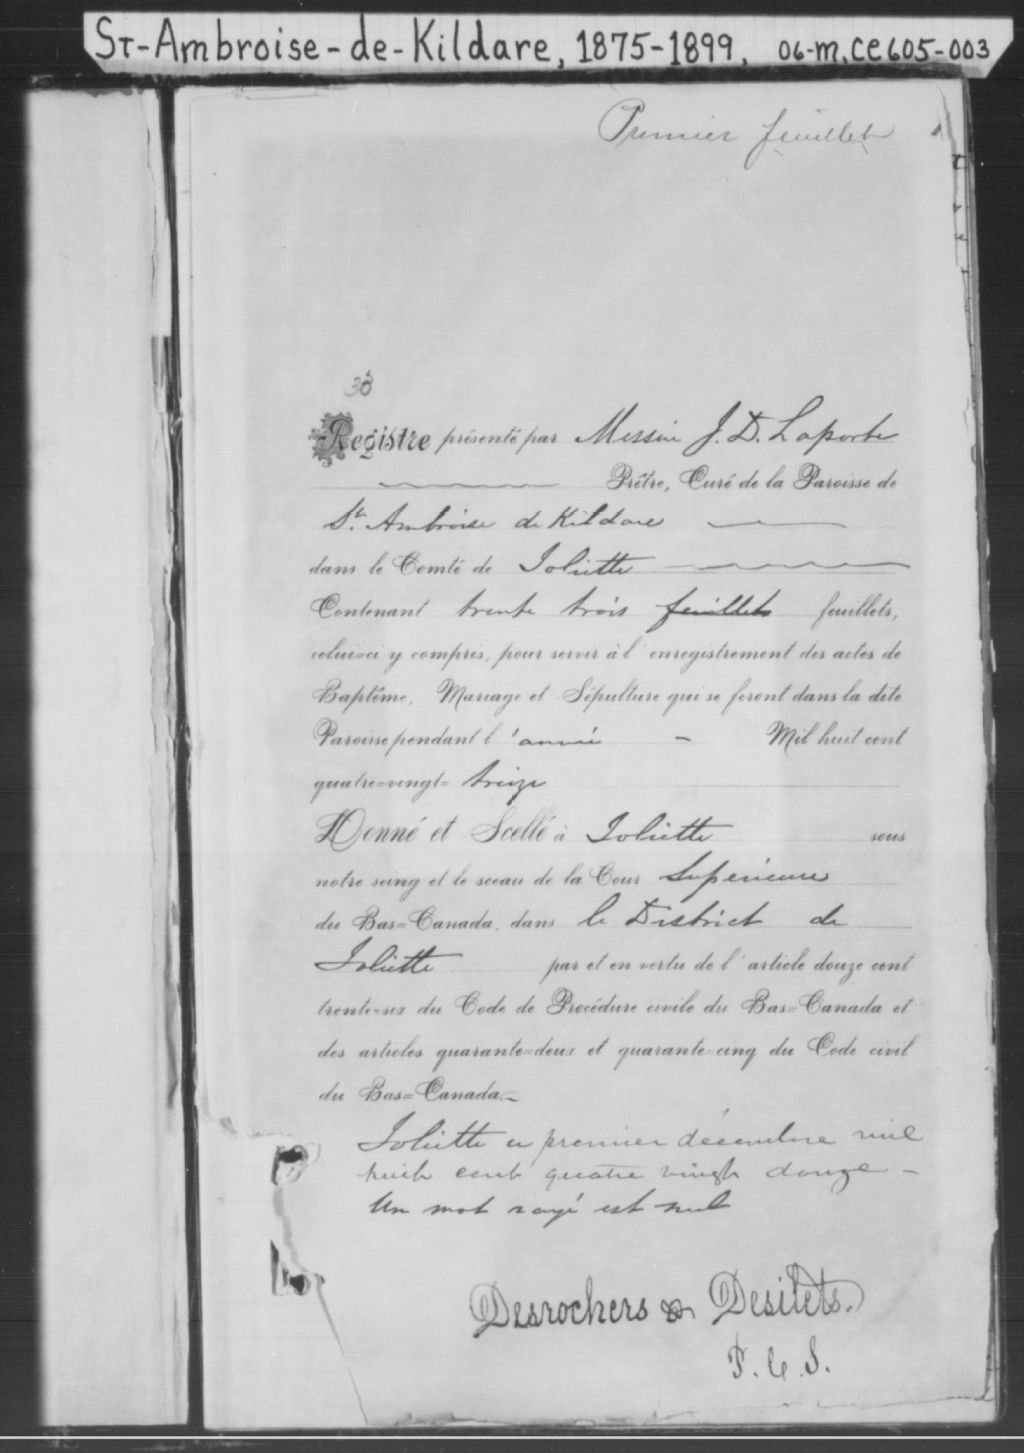 ST-Ambroise-de-Kildare, 1875-1899, 06-M, CE605-003
Premier feuillet
33
Registre présenté par Messire J. D. Laporte
Prêtre, Curé de la Paroisse de
St. Ambroise de Kildare
dans le Comté de Joliette
Contenant trente trois feuillets feuillets,
celui-ci y compris, pour servir à l'enregistrement des actes de
Baptême, Mariage et Sépulture qui se feront dans la dite
Paroisse pendant l'année - Mil huit cent
quatre-vingt- treize
Donné et Scellé à Joliette sous
notre seing et le sceau de la Cour Supérieure
du Bas-Canada, dans le District de
Joliette par et en vertu de l'article douze cent
trente-six du Code de Procédure civile du Bas-Canada et
des articles quarante-deux et quarante-cinq du Code civil
du Bas-Canada.
Joliette ce premier décembre mil
huit cent quatre vingt douze -
Un mot rayé est nul
Desrochers & Desilets.
P. C. S.